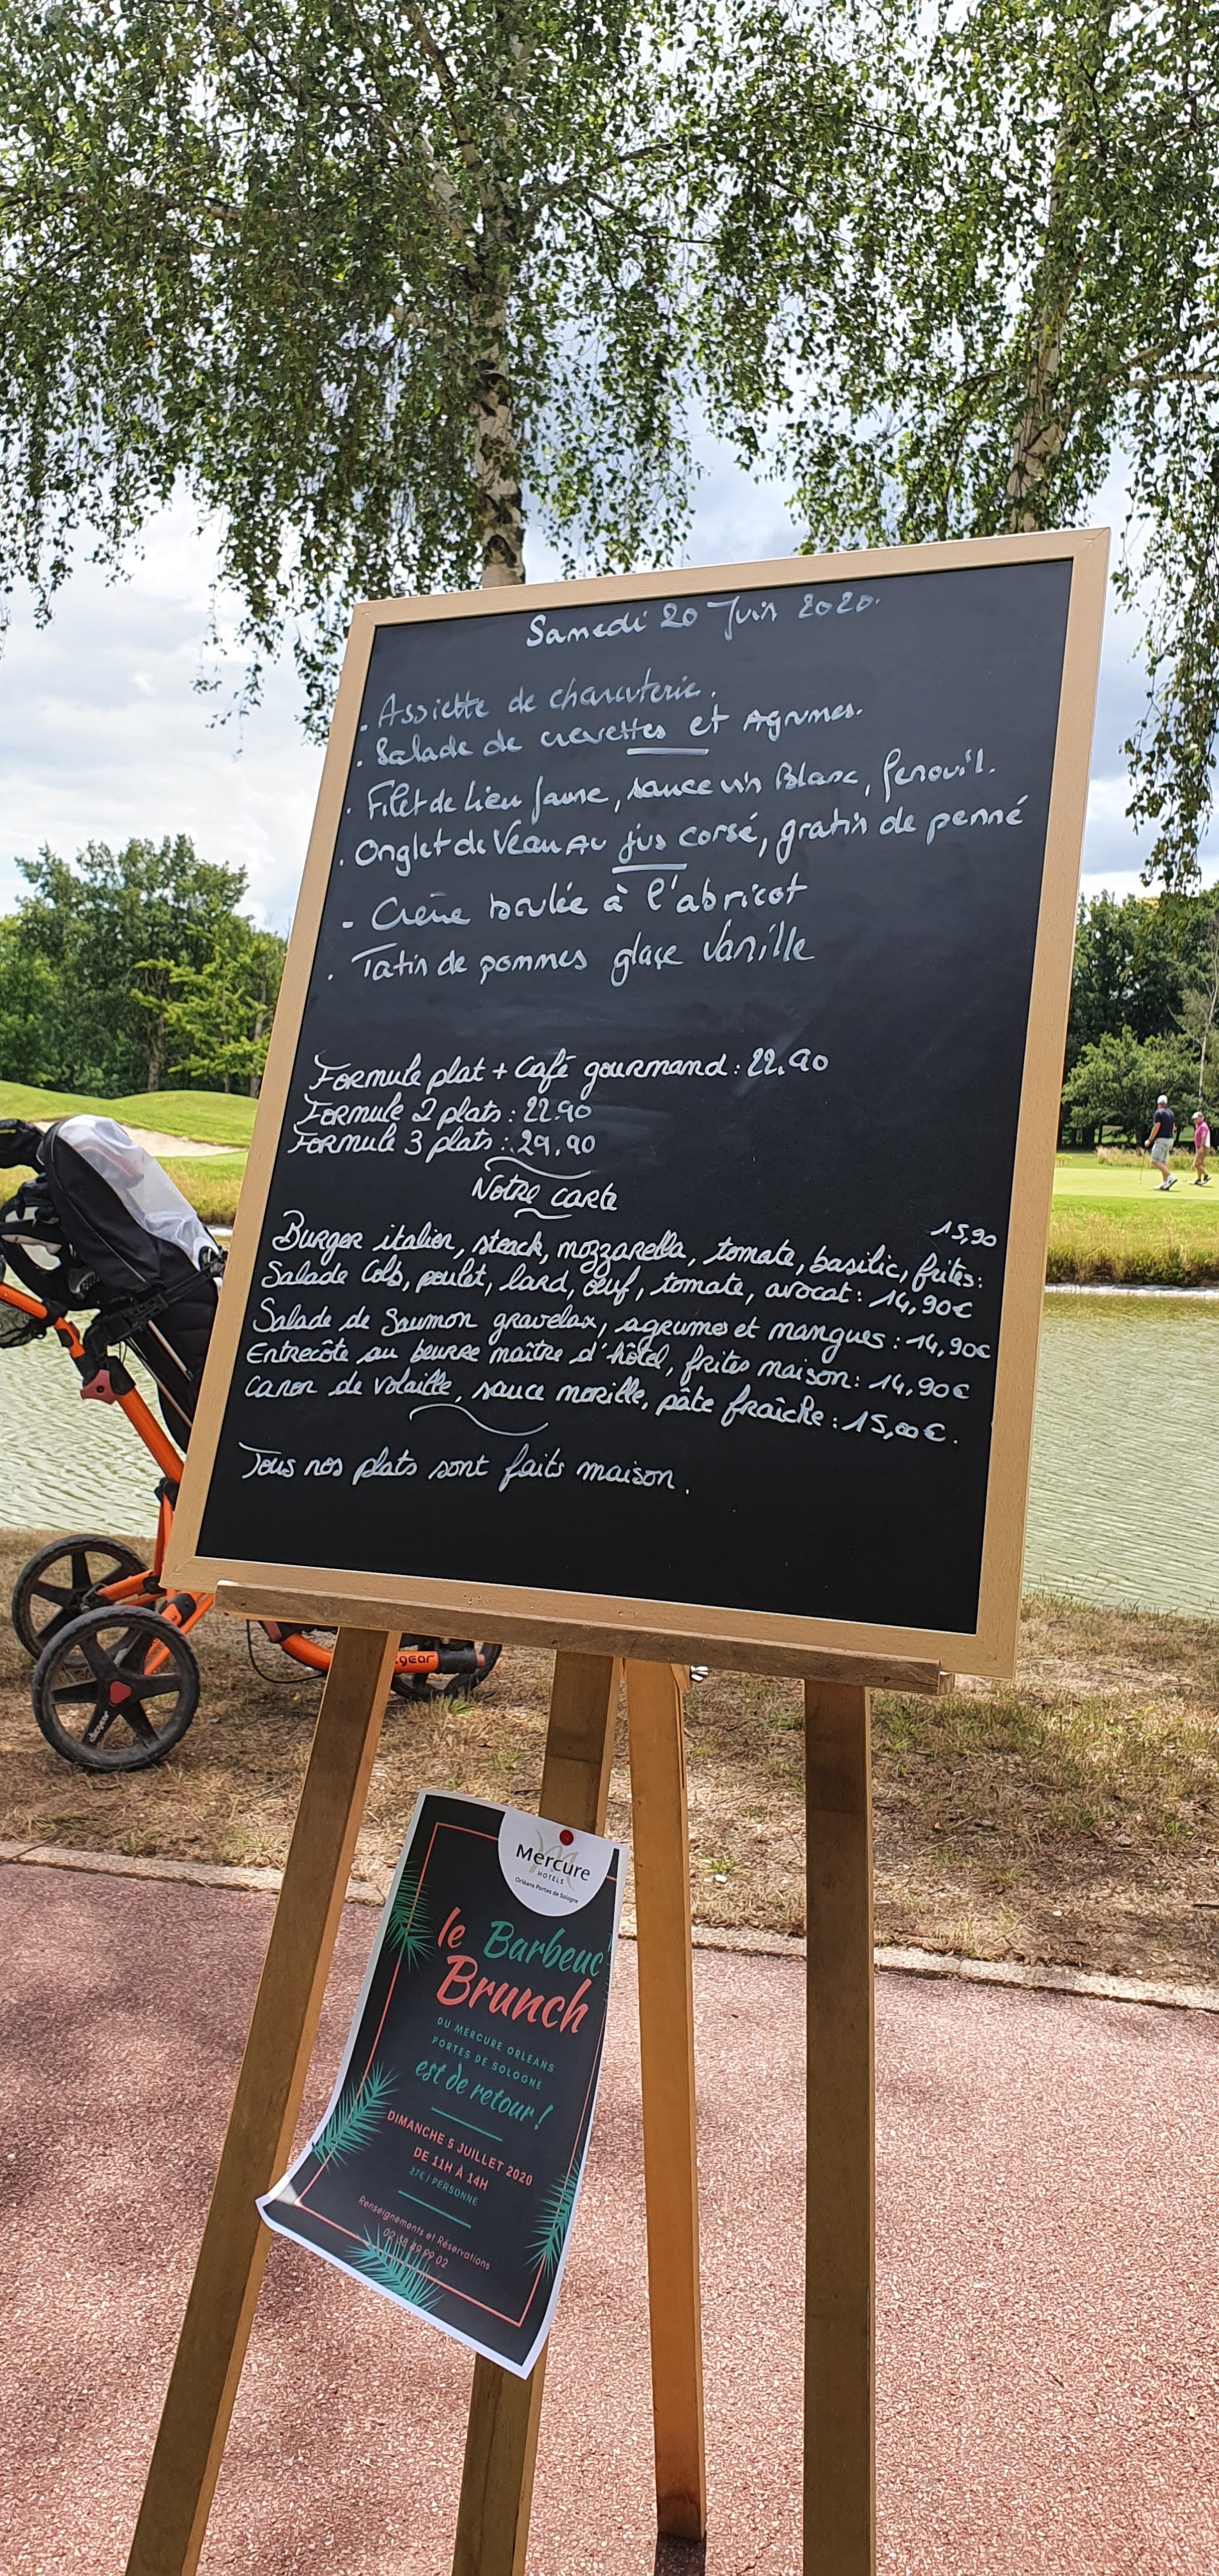 Samedi 20 Juin 2020.
. Assiette de charcuterie.
. Salade de crevettes et Agrumes.
. Filet de Lieu Jaune, sauce vin Blanc, fenouil.
. Onglet de Veau Au jus corsé, gratin de penné
- Crème brulée à l'abricot
. Tatin de pommes glace Vanille
Formule plat + Café gourmand : 22.90
Formule 2 plats : 22.90
Formule 3 plats : 29.90
Notre carte
15,90
Burger italien, steack, mozzarella, tomate, basilic, frites:
Salade Cob, poulet, lard, œuf, tomate, avocat : 14,90€
Salade de Saumon gravelax, agrumes et mangues : 14,90€
Entrecôte au beurre maître d'hôtel, frites maison: 14,90€
Canon de volaille, sauce morille, pâte fraîche : 15,00€.
Tous nos plats sont faits maison.
cgear
clicgear
Mercure
HOTELS
Orléans Portes de Sologne
le Barbeuc
Brunch
DU MERCURE ORLEANS
PORTES DE SOLOGNE
est de retour !
DIMANCHE 5 JUILLET 2020
DE 11H À 14H
27€ / PERSONNE
Renseignements et Réservations
02 38 49 99 02